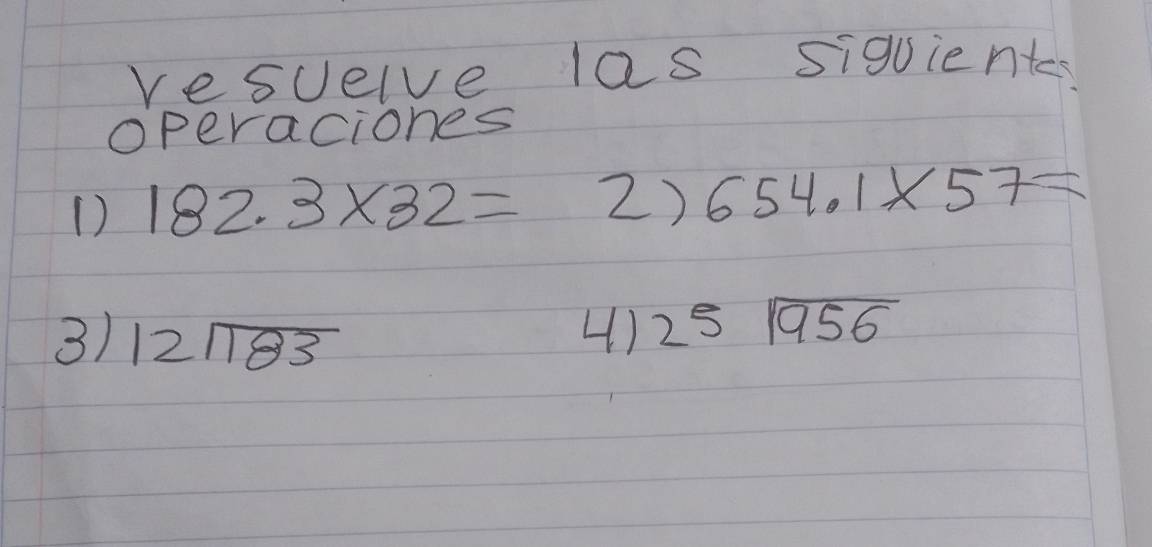 resuelve las siguientes
operaciones
1) 182.3x32= 2) 654.1x57=
3) 12⟌183 4) 25⟌956